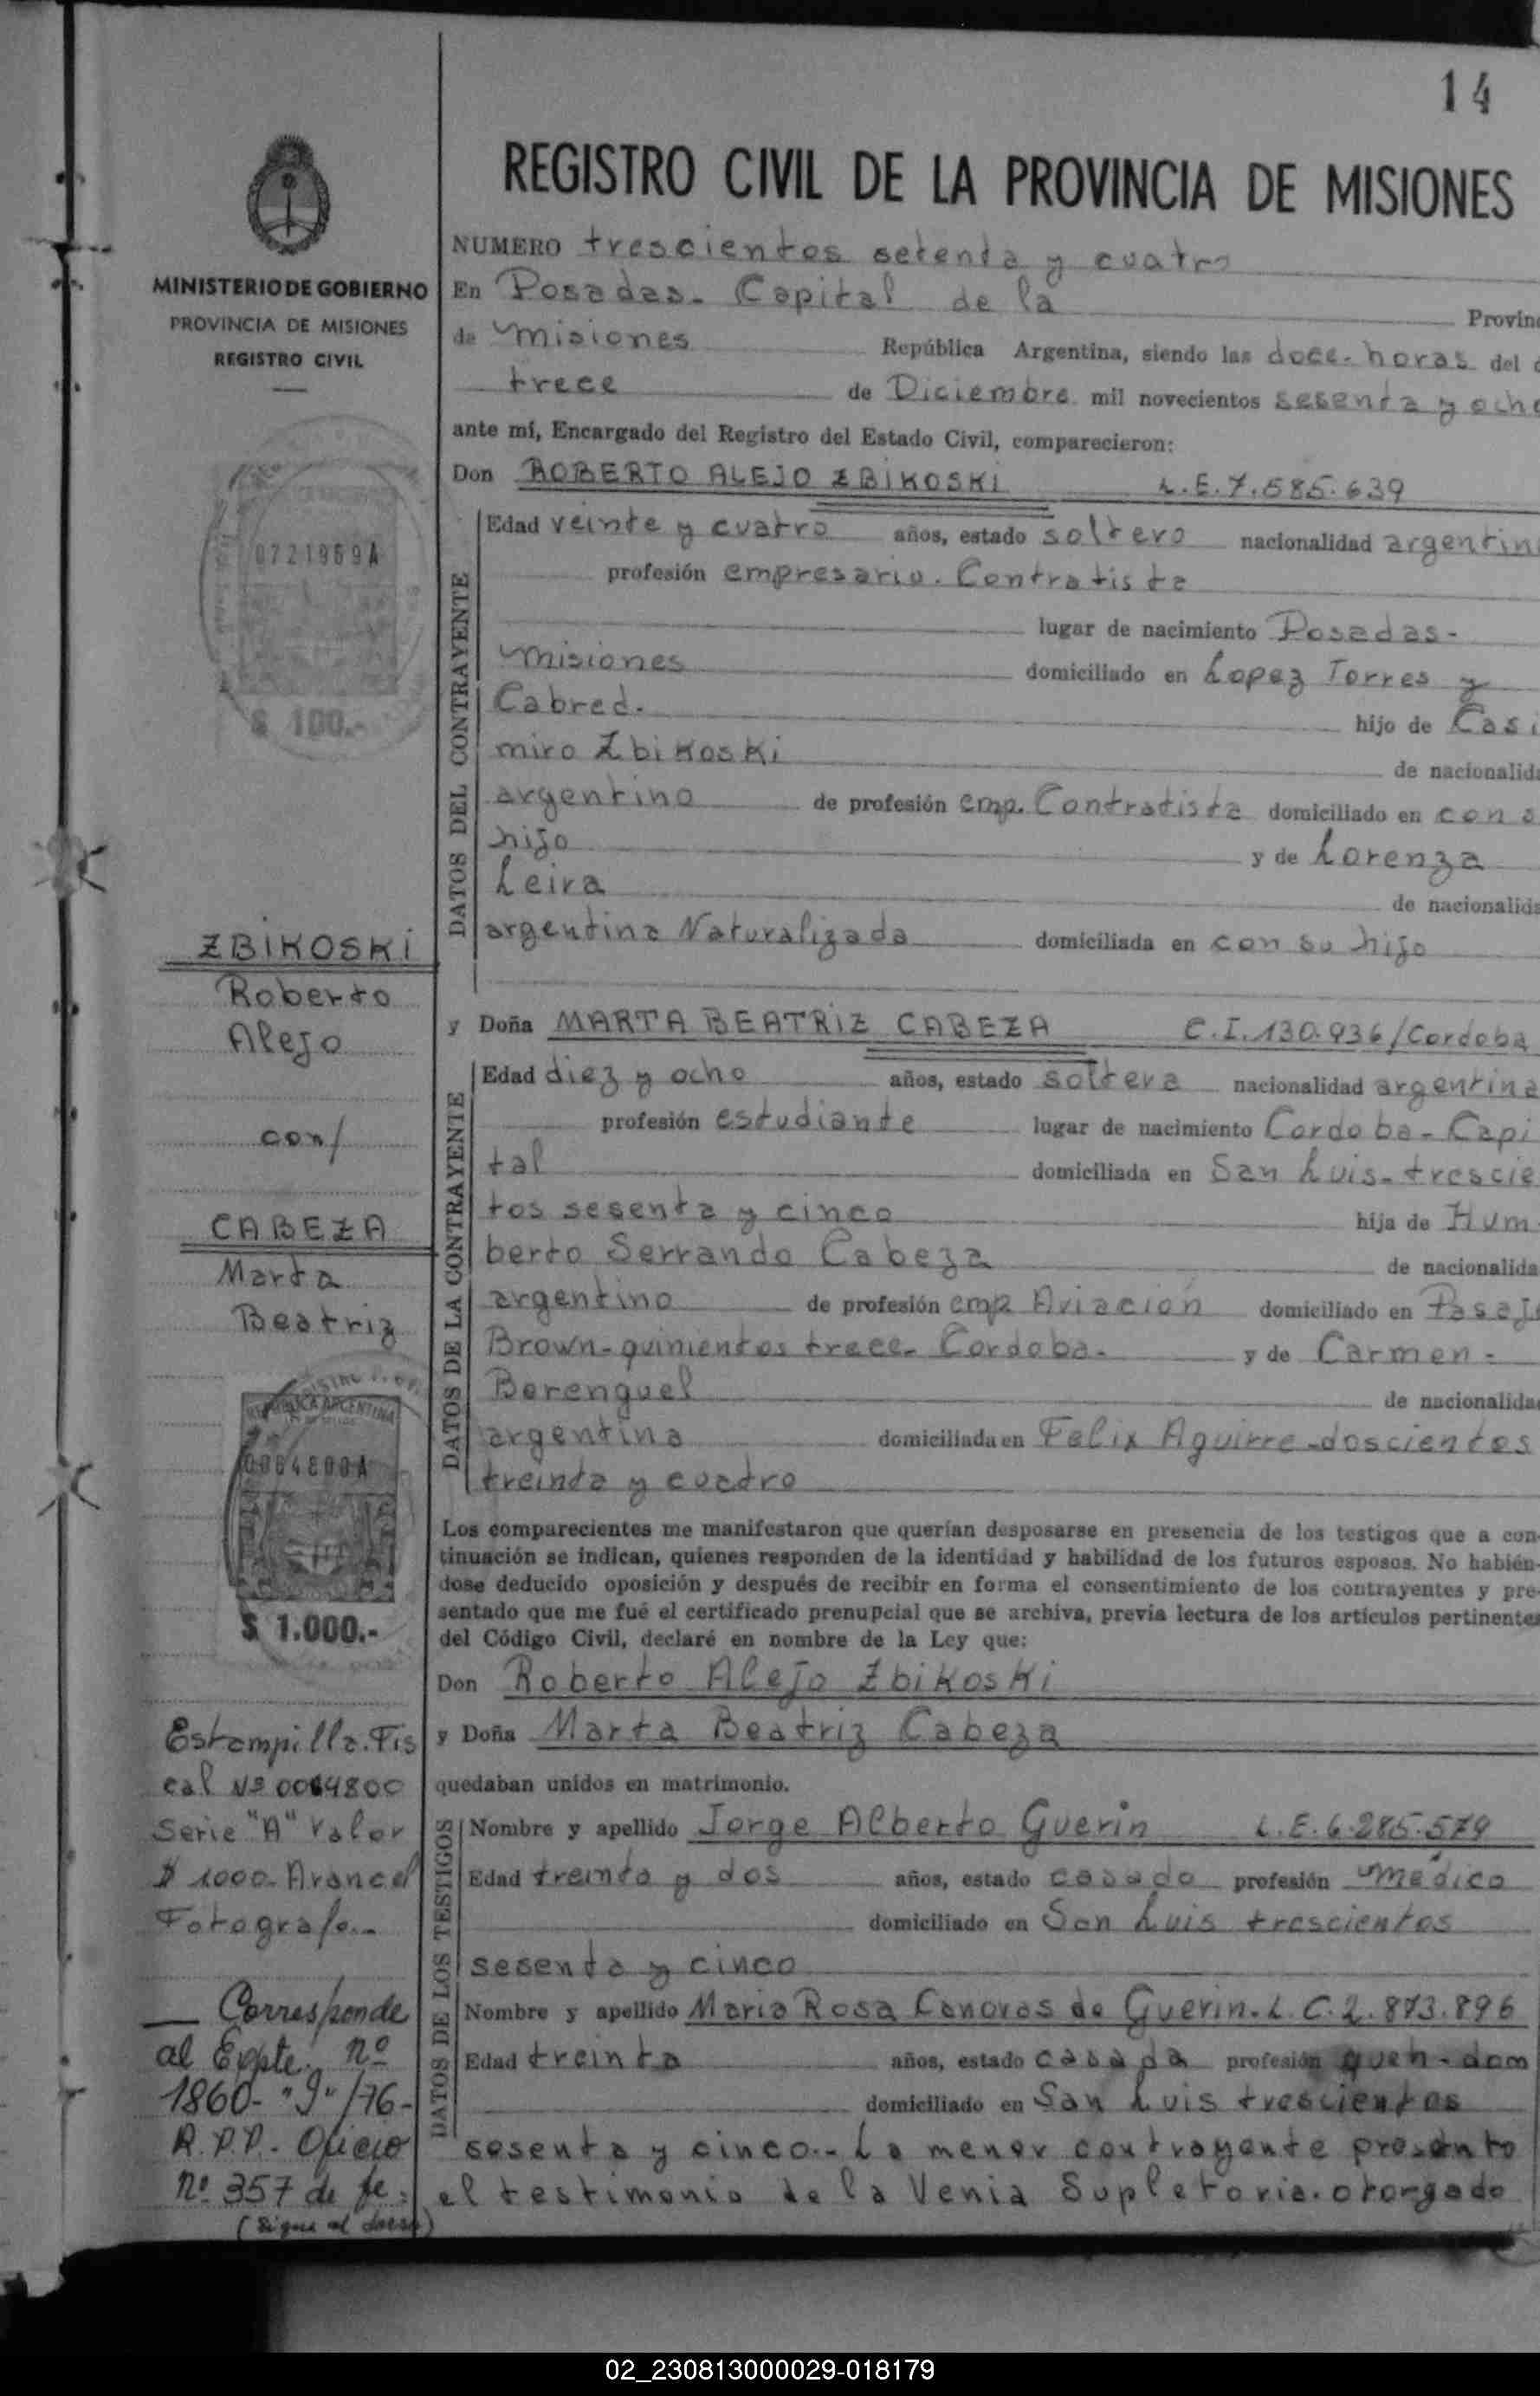 14
REGISTRO CIVIL DE LA PROVINCIA DE MISIONES
MINISTERIO DE GOBIERNO
PROVINCIA DE MISIONES
REGISTRO CIVIL
0721969A
$ 100.-
ZBIKOSKI
Roberto
Alejo
con/
CABEZA
Marta
Beatriz
REPUBLICA ARGENTINA
0064800A
$ 1.000.-
Estampilla. Fis
cal Nº 0064800
Serie "A" Valor
$ 1000- Arancel
Fotografo.-
Corresponde
al Expte. nº
1860- "J"/76-
R.P.P.- Oficio
nº 357 de fe:
(Sigue al dorso)
NUMERO trescientos setenta y cuatro
En Posadas. Capital de la Provin
de Misiones República Argentina, siendo las doce. horas del
trece de Diciembre mil novecientos sesenta y ocho
ante mí, Encargado del Registro del Estado Civil, comparecieron:
Don ROBERTO ALEJO ZBIKOSKI L.E.7.585.639
DATOS DEL CONTRAYENTE
Edad veinte y cuatro años, estado soltero nacionalidad argentin
profesión empresario. Contratista
lugar de nacimiento Posadas-
Misiones domiciliado en Lopez Torres y
Cabred. hijo de Casi
miro Zbikoski de nacionalid
argentino de profesión emp. Contratista domiciliado en con s
hijo y de Lorenza
Leira de nacionalid
argentina Naturalizada domiciliada en con su hijo
y Doña MARTA BEATRIZ CABEZA C.I.130.936/Cordoba
DATOS DE LA CONTRAYENTE
Edad diez y ocho años, estado soltera nacionalidad argentina
profesión estudiante lugar de nacimiento Cordoba-Capi
tal domiciliada en San Luis-trescie
tos sesenta y cinco hija de Hum
berto Serrando Cabeza de nacionalida
argentino de profesión emp Aviación domiciliado en Pasaje
Brown-quinientos trece. Cordoba. y de Carmen-
Berenguel de nacionalida
argentina domiciliada en Felix Aguirre-doscientos
treinta y cuatro
Los comparecientes me manifestaron que querían desposarse en presencia de los testigos que a con-
tinuación se indican, quienes responden de la identidad y habilidad de los futuros esposos. No habién-
dose deducido oposición y después de recibir en forma el consentimiento de los contrayentes y pre-
sentado que me fué el certificado prenupcial que se archiva, previa lectura de los artículos pertinentes
del Código Civil, declaré en nombre de la Ley que:
Don Roberto Alejo Zbikoski
y Doña Marta Beatriz Cabeza
quedaban unidos en matrimonio.
DATOS DE LOS TESTIGOS
Nombre y apellido Jorge Alberto Guerin L.E.6.285.579
Edad treinta y dos años, estado casado profesión Médico
domiciliado en San Luis trescientos
sesenta y cinco
Nombre y apellido Maria Rosa Canovas de Guerin.L.C.2.873.896
Edad treinta años, estado casada profesión queh-dom
domiciliado en San Luis trescientos
sesenta y cinco.-La menor contrayente presento
el testimonio de la Venia Supletoria.otorgado
02_230813000029-018179